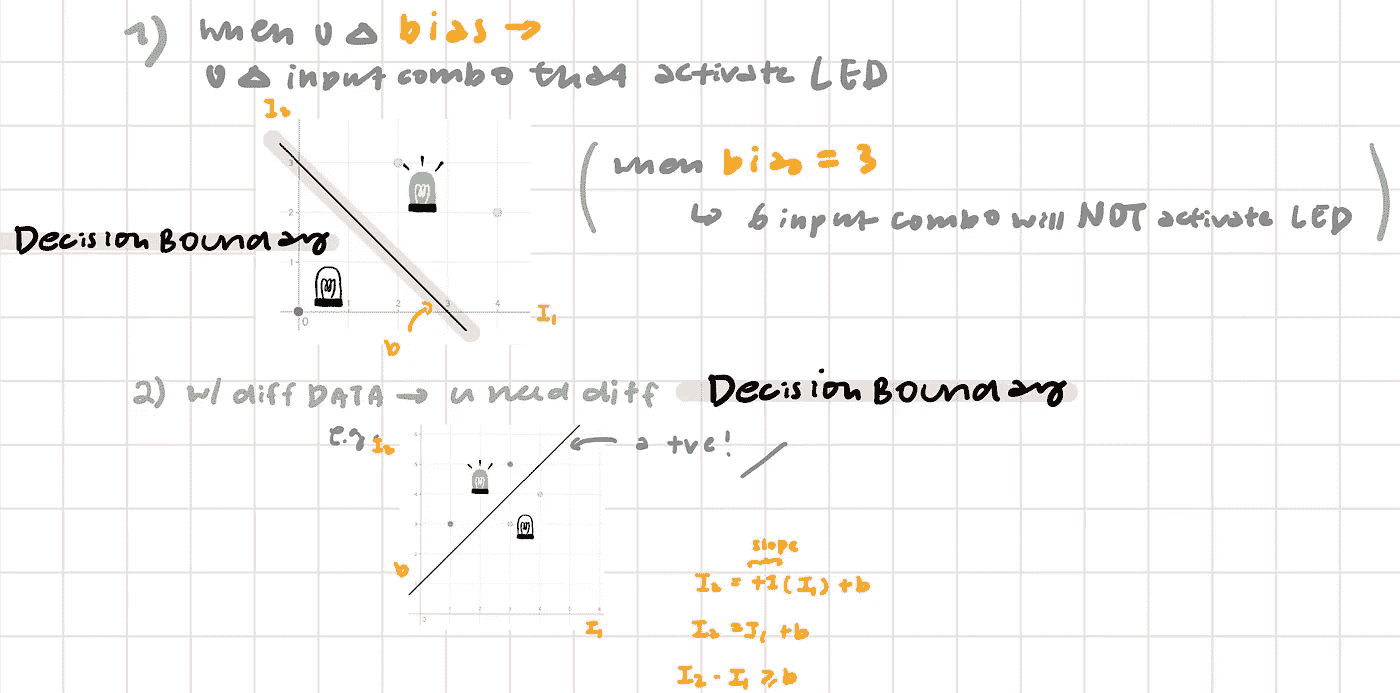 1) when U Δ bias →
U Δ input combo that activate LED
I₂
3
2
1
0
2
3
4
I₁
b
Decision Boundary
(when bias = 3
↳ 6 input combo will NOT activate LED)
2) w/ diff DATA → u need diff Decision Boundary
e.g. I₂
← a +ve! /
6
5
4
3
2
0
1
2
3
4
5
6
b
I₁
slope
I₂ = +1(I₁) + b
I₂ = I₁ + b
I₂ - I₁ ≥ b